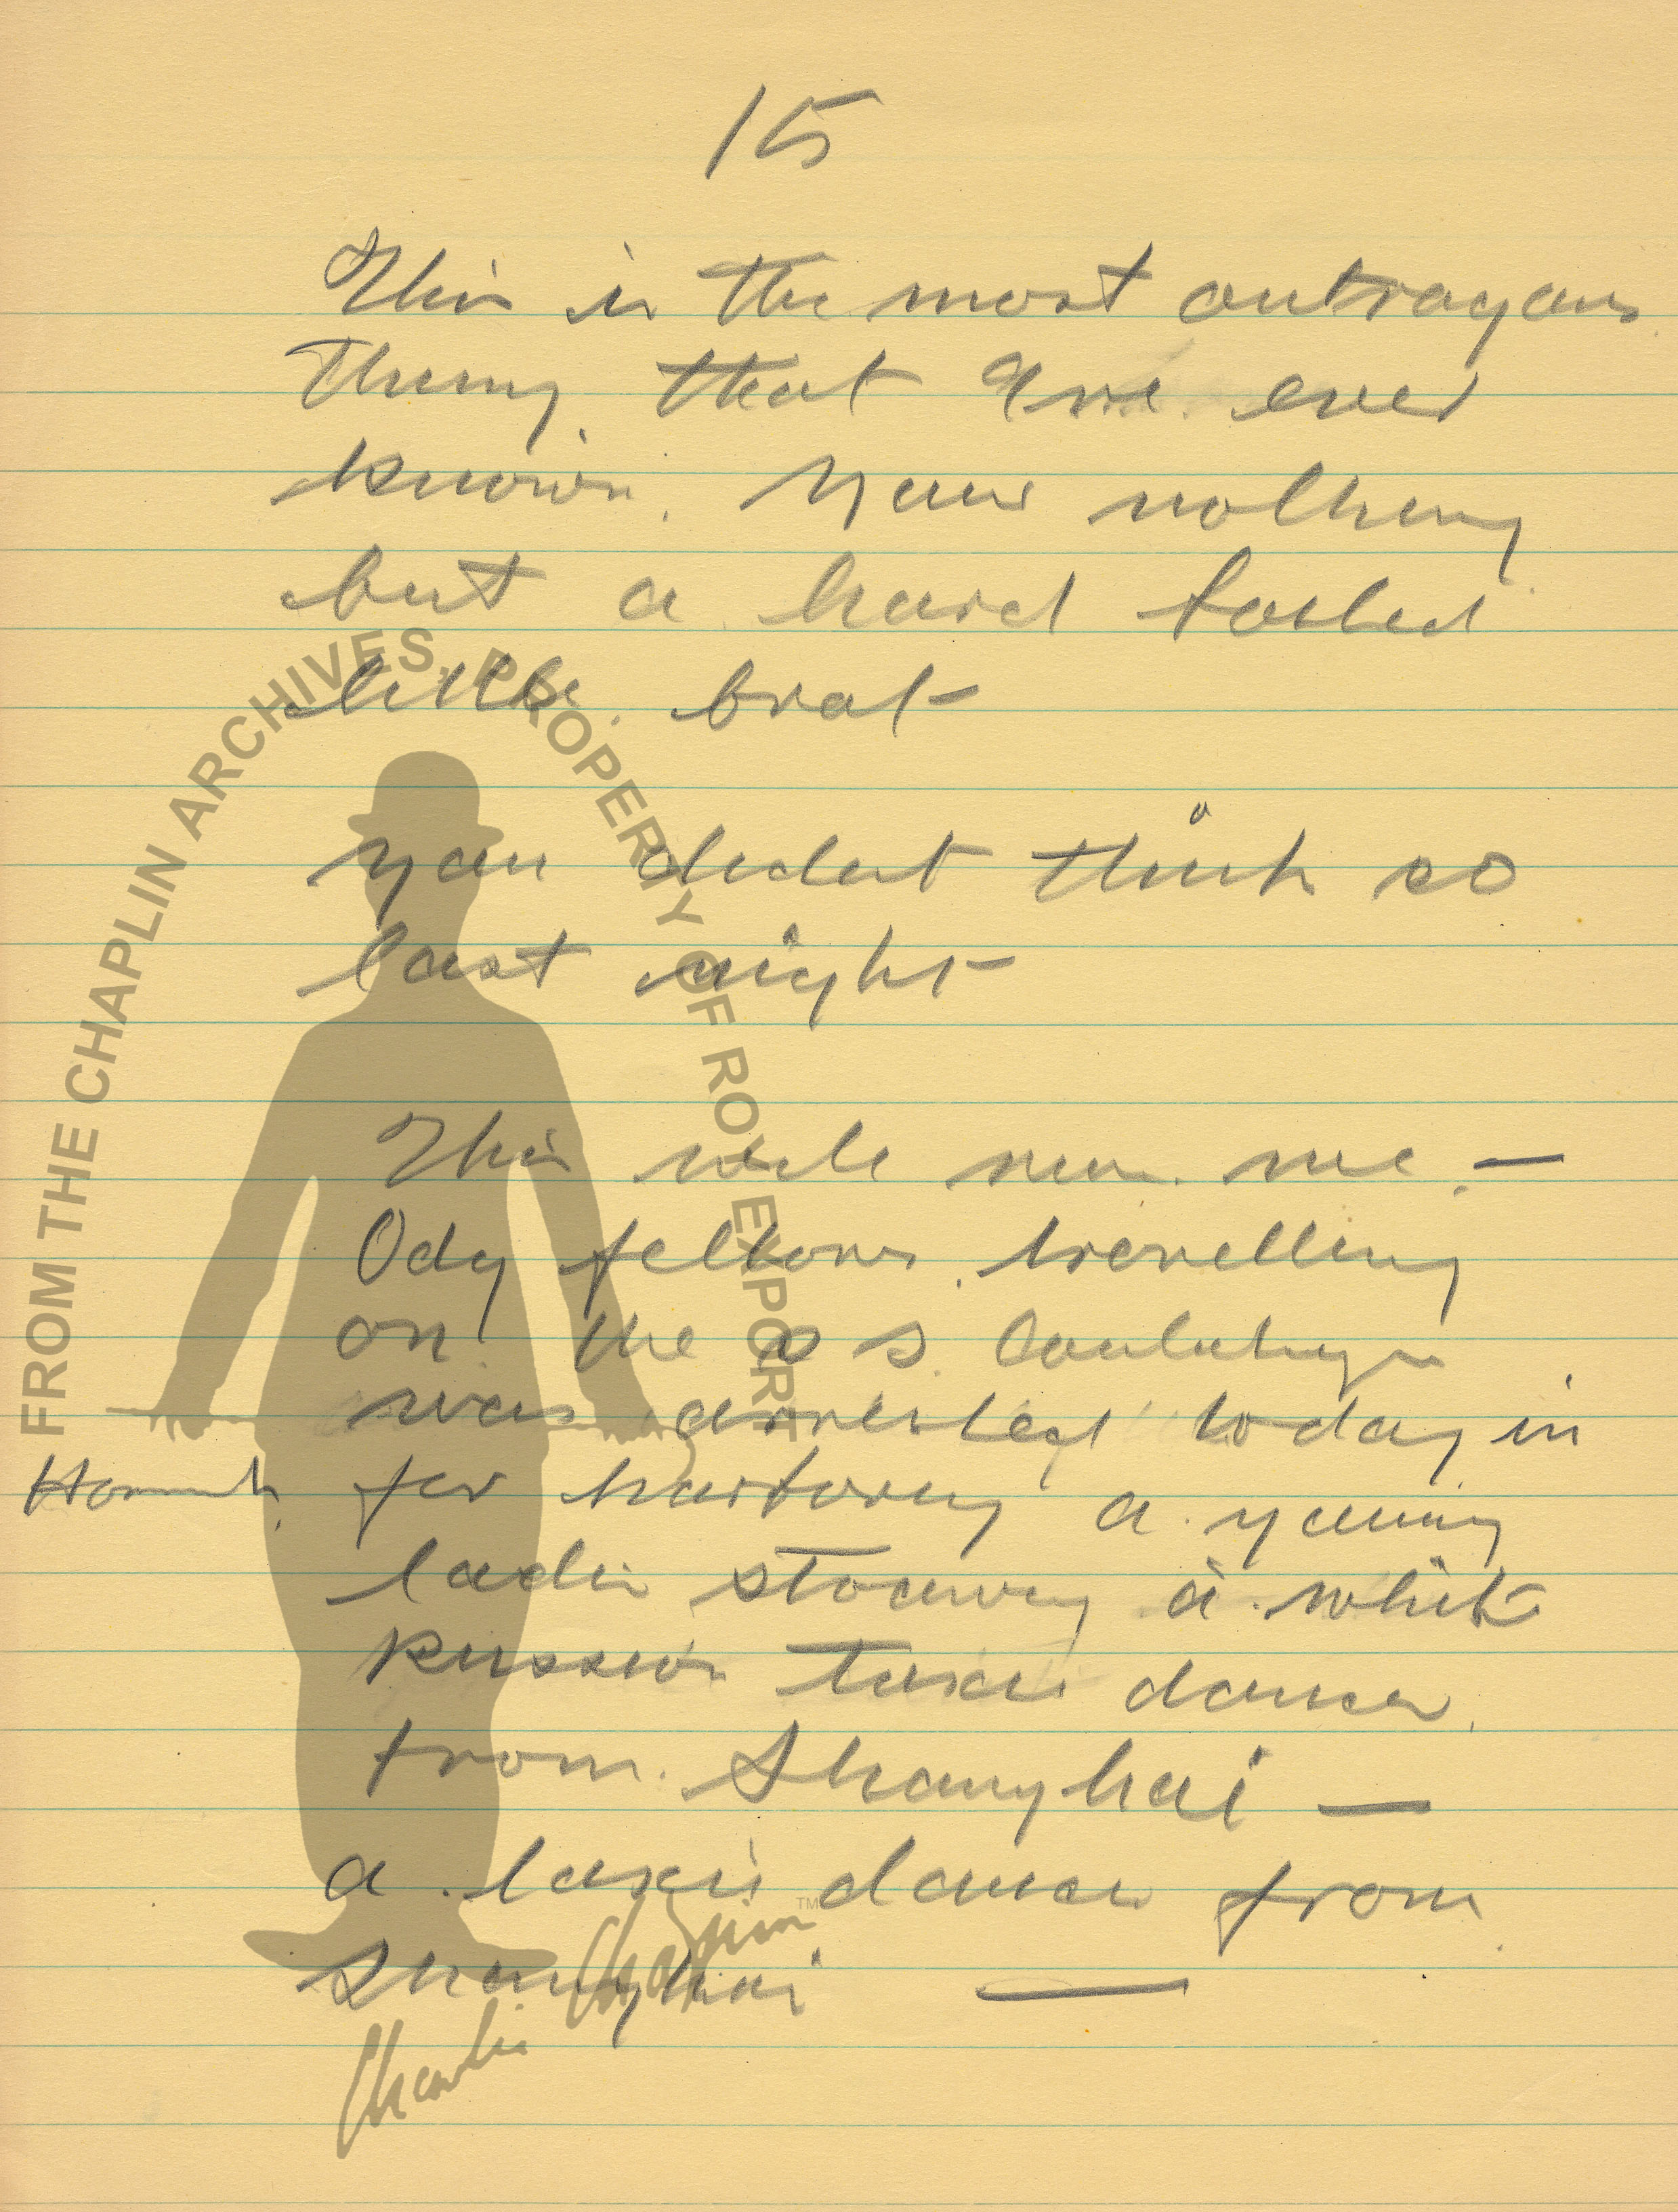 15
This is the most outragous
thing that I've ever
known. Your nothing
but a hard boiled
little brat
you dident think so
last night
This will ruin me. —
Ody fellows trevelling
on the s s
was arrested today in
for harboring a young
ladie stoaway a white
Russian taxi dancer
from Shanghai —
a taxi dancer from
Shanghai —
FROM THE CHAPLIN ARCHIVES, PROPERTY OF ROY EXPORT
Charlie Chaplin ™